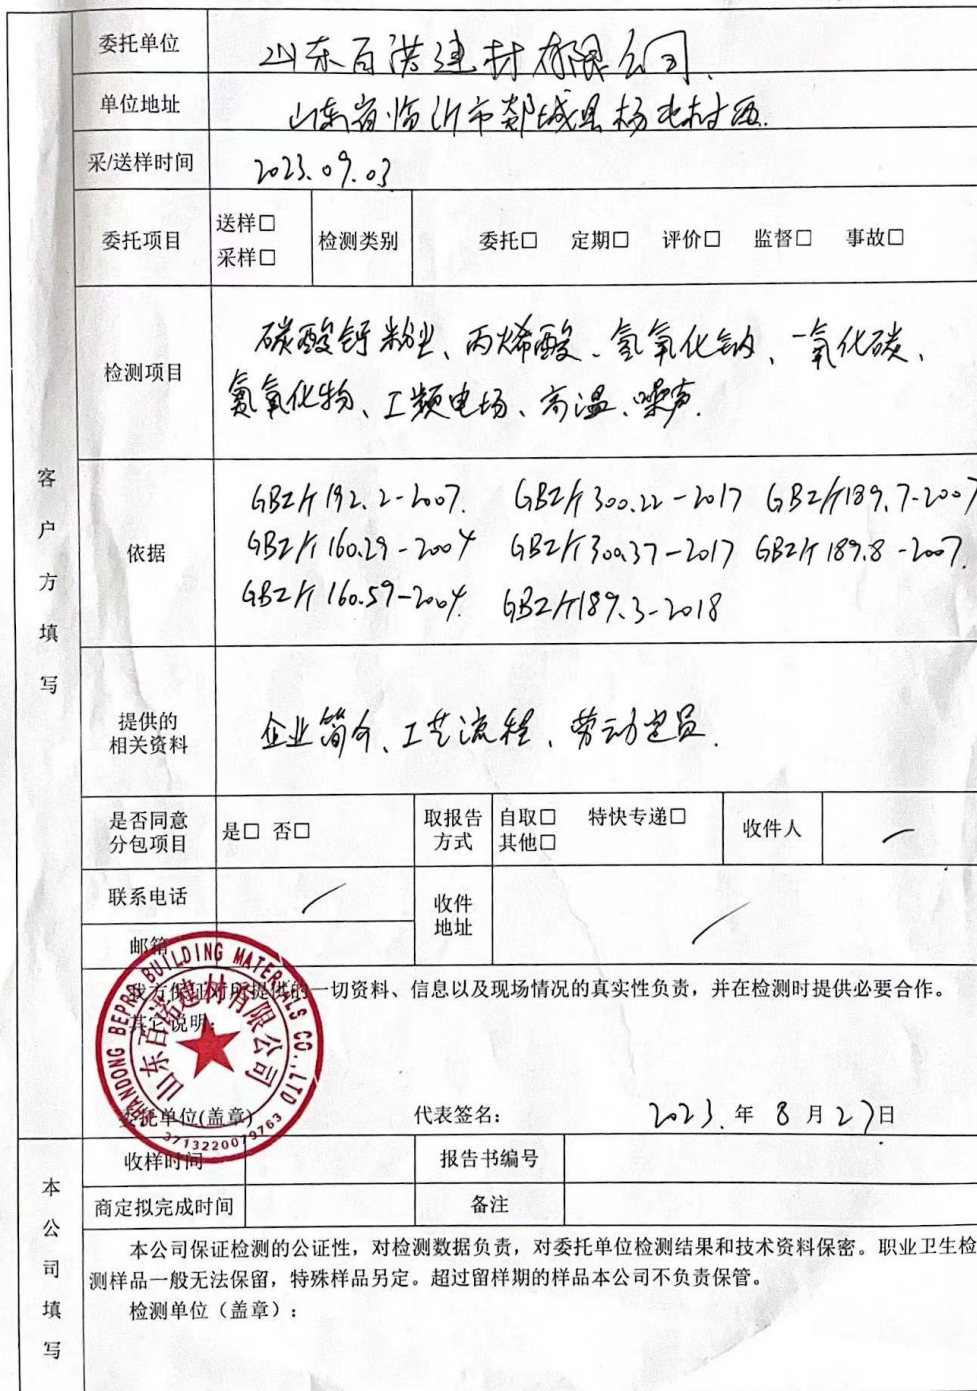 委托单位 山东百诺建材有限公司.
单位地址 山东省临沂市郯城县杨北村西.
采/送样时间 2023.09.03
委托项目 送样□ 采样□ 检测类别 委托□ 定期□ 评价□ 监督□ 事故□
检测项目
碳酸钙粉尘、丙烯酸、氢氧化钠、一氧化碳、
氮氧化物、工频电场、高温、噪声.
依据
GBZ/T 192.2-2007. GBZ/T 300.22-2017 GBZ/T 189.7-2007
GBZ/T 160.29-2004 GBZ/T 300.37-2017 GBZ/T 189.8-2007.
GBZ/T 160.59-2004. GBZ/T 189.3-2018
提供的
相关资料
企业简介、工艺流程、劳动定员.
是否同意
分包项目
是□ 否□
取报告
方式
自取□ 特快专递□
其他□
收件人 /
联系电话 /
收件
地址
/
邮箱
我方保证对所提供的一切资料、信息以及现场情况的真实性负责，并在检测时提供必要合作。
其它说明：
SHANDONG BEPRO BUILDING MATERIALS CO.,LTD
山东百诺建材有限公司
3713220079763
委托单位(盖章) 代表签名： 2023.年 8 月 27日
客户方填写
收样时间 报告书编号
商定拟完成时间 备注
本公司保证检测的公证性，对检测数据负责，对委托单位检测结果和技术资料保密。职业卫生检
测样品一般无法保留，特殊样品另定。超过留样期的样品本公司不负责保管。
检测单位（盖章）：
本公司填写